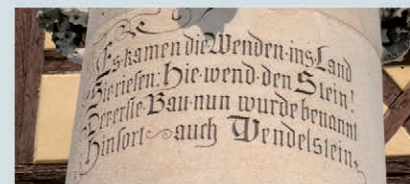 Es·kamen die Wenden·ins Land
Sie riefen: hie·wend·den Stein!
Der erste Bau·nun wurde benannt
Hinfort auch Wendelstein.